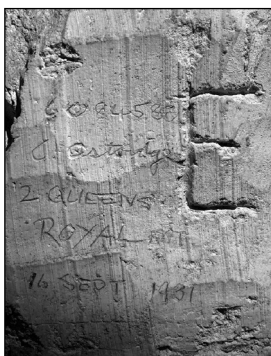 6084586
C. Ostridge
2 QUEENS
ROYAL
16 SEPT 1931